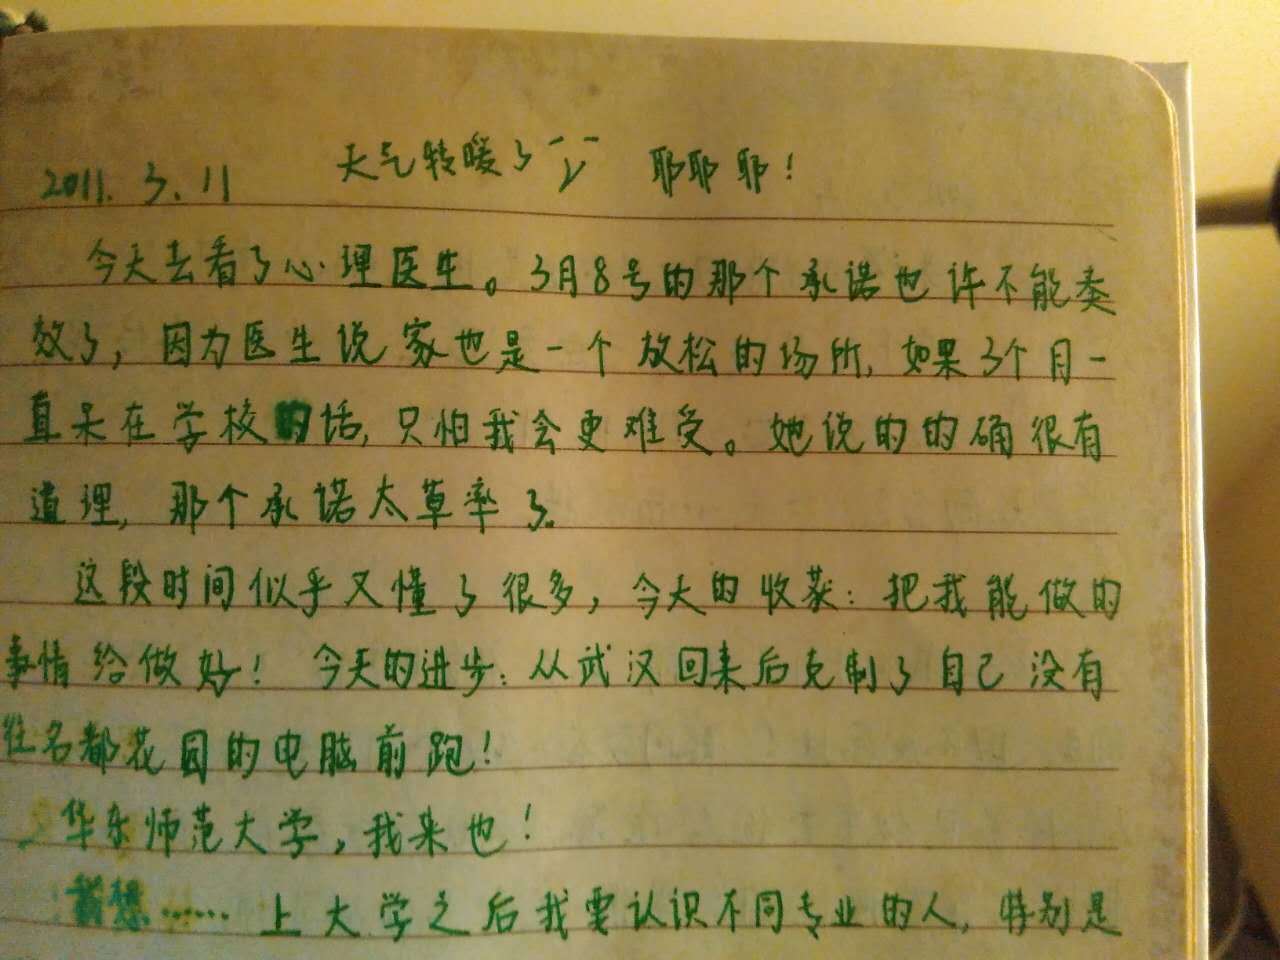 2011.3.11 天气转暖了 耶耶耶！
今天去看了心理医生。3月8号的那个承诺也许不能奏
效了，因为医生说家也是一个放松的场所，如果3个月一
直呆在学校的话，只怕我会更难受。她说的的确很有
道理，那个承诺太草率了。
这段时间似乎又懂了很多，今天的收获：把我能做的
事情给做好！今天的进步：从武汉回来后克制了自己没有
往名都花园的电脑前跑！
华东师范大学，我来也！
……上大学之后我要认识不同专业的人，特别是